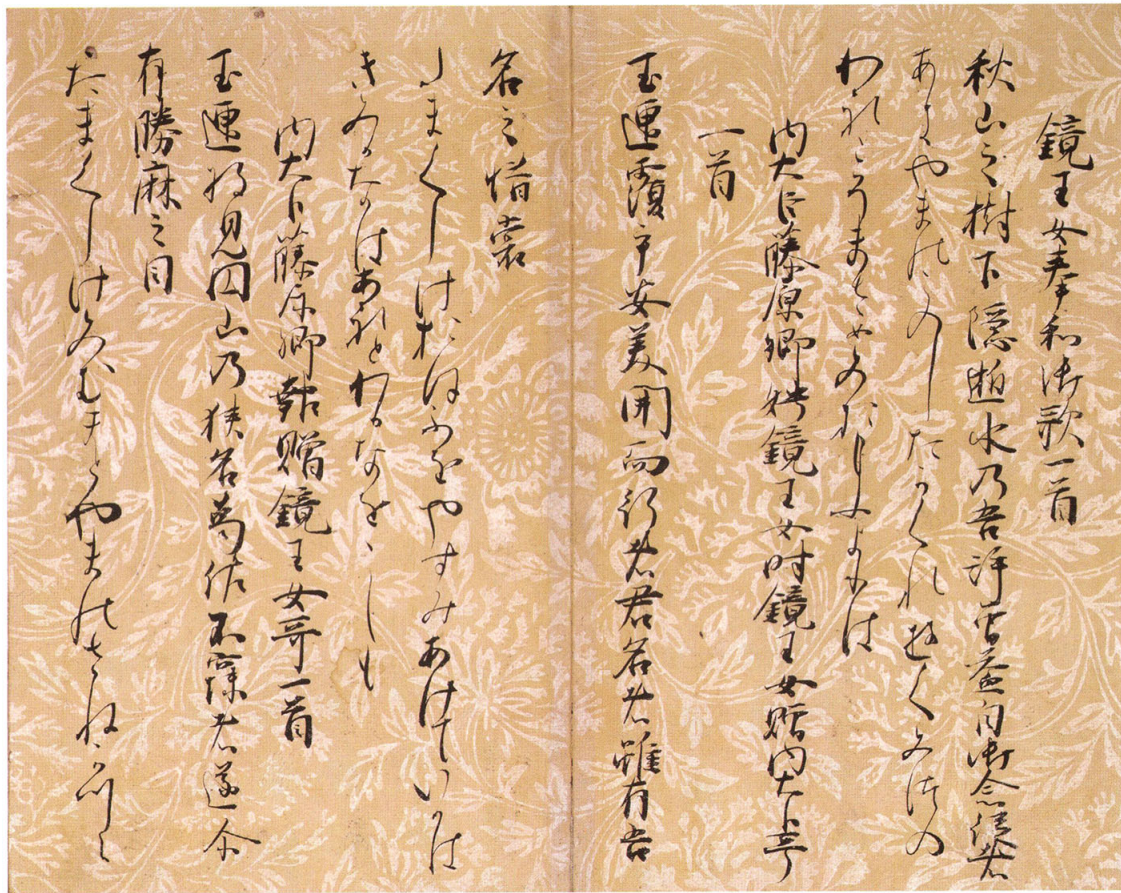 鏡王女奉和御歌一首
秋山之樹下隠逝水乃吾許曽益目御念従者
あきやまのこのしたかくれゆくみつの
われこそまさめみおもひよりは
内大臣藤原卿娉鏡王女時鏡王女贈内大臣哥
一首
玉匣覆乎安美開而行者君名者雖有吾
名之惜裳
たまくしけおほふをやすみあけていかは
きみかなはあれとわかなをゝしも
内大臣藤原卿報贈鏡王女哥一首
玉匣将見円山乃狭名葛佐不寐者遂尓
有勝麻之目
たまくしけみむまとやまのさねかつら